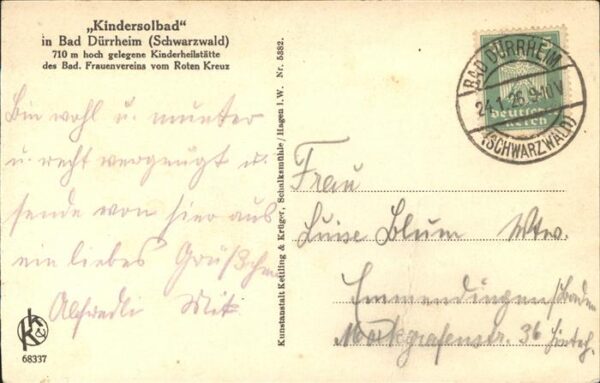 „Kindersolbad"
in Bad Dürrheim (Schwarzwald)
710 m hoch gelegene Kinderheilstätte
des Bad. Frauenvereins vom Roten Kreuz
Bin wohl u. munter
u. recht vergnügt u.
sende von hier aus
ein liebes Grüßchen
Alfredli
Kunstanstalt Kettling & Krüger, Schalksmühle / Hagen i. W. Nr. 5382.
BAD DÜRRHEIM
24.1.26.9-10V
(SCHWARZWALD)
Deutsches
Reich
Frau
Luise Blum Wtw.
Emmendingen/Baden
Markgrafenstr. 36
k&h
68337